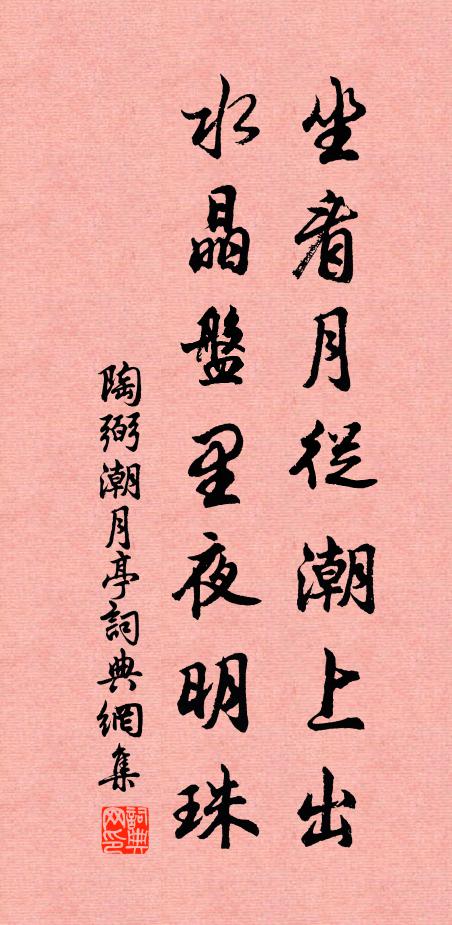 坐看月從潮上出
水晶盤里夜明珠
陶弼潮月亭詞典網集
詞典网印